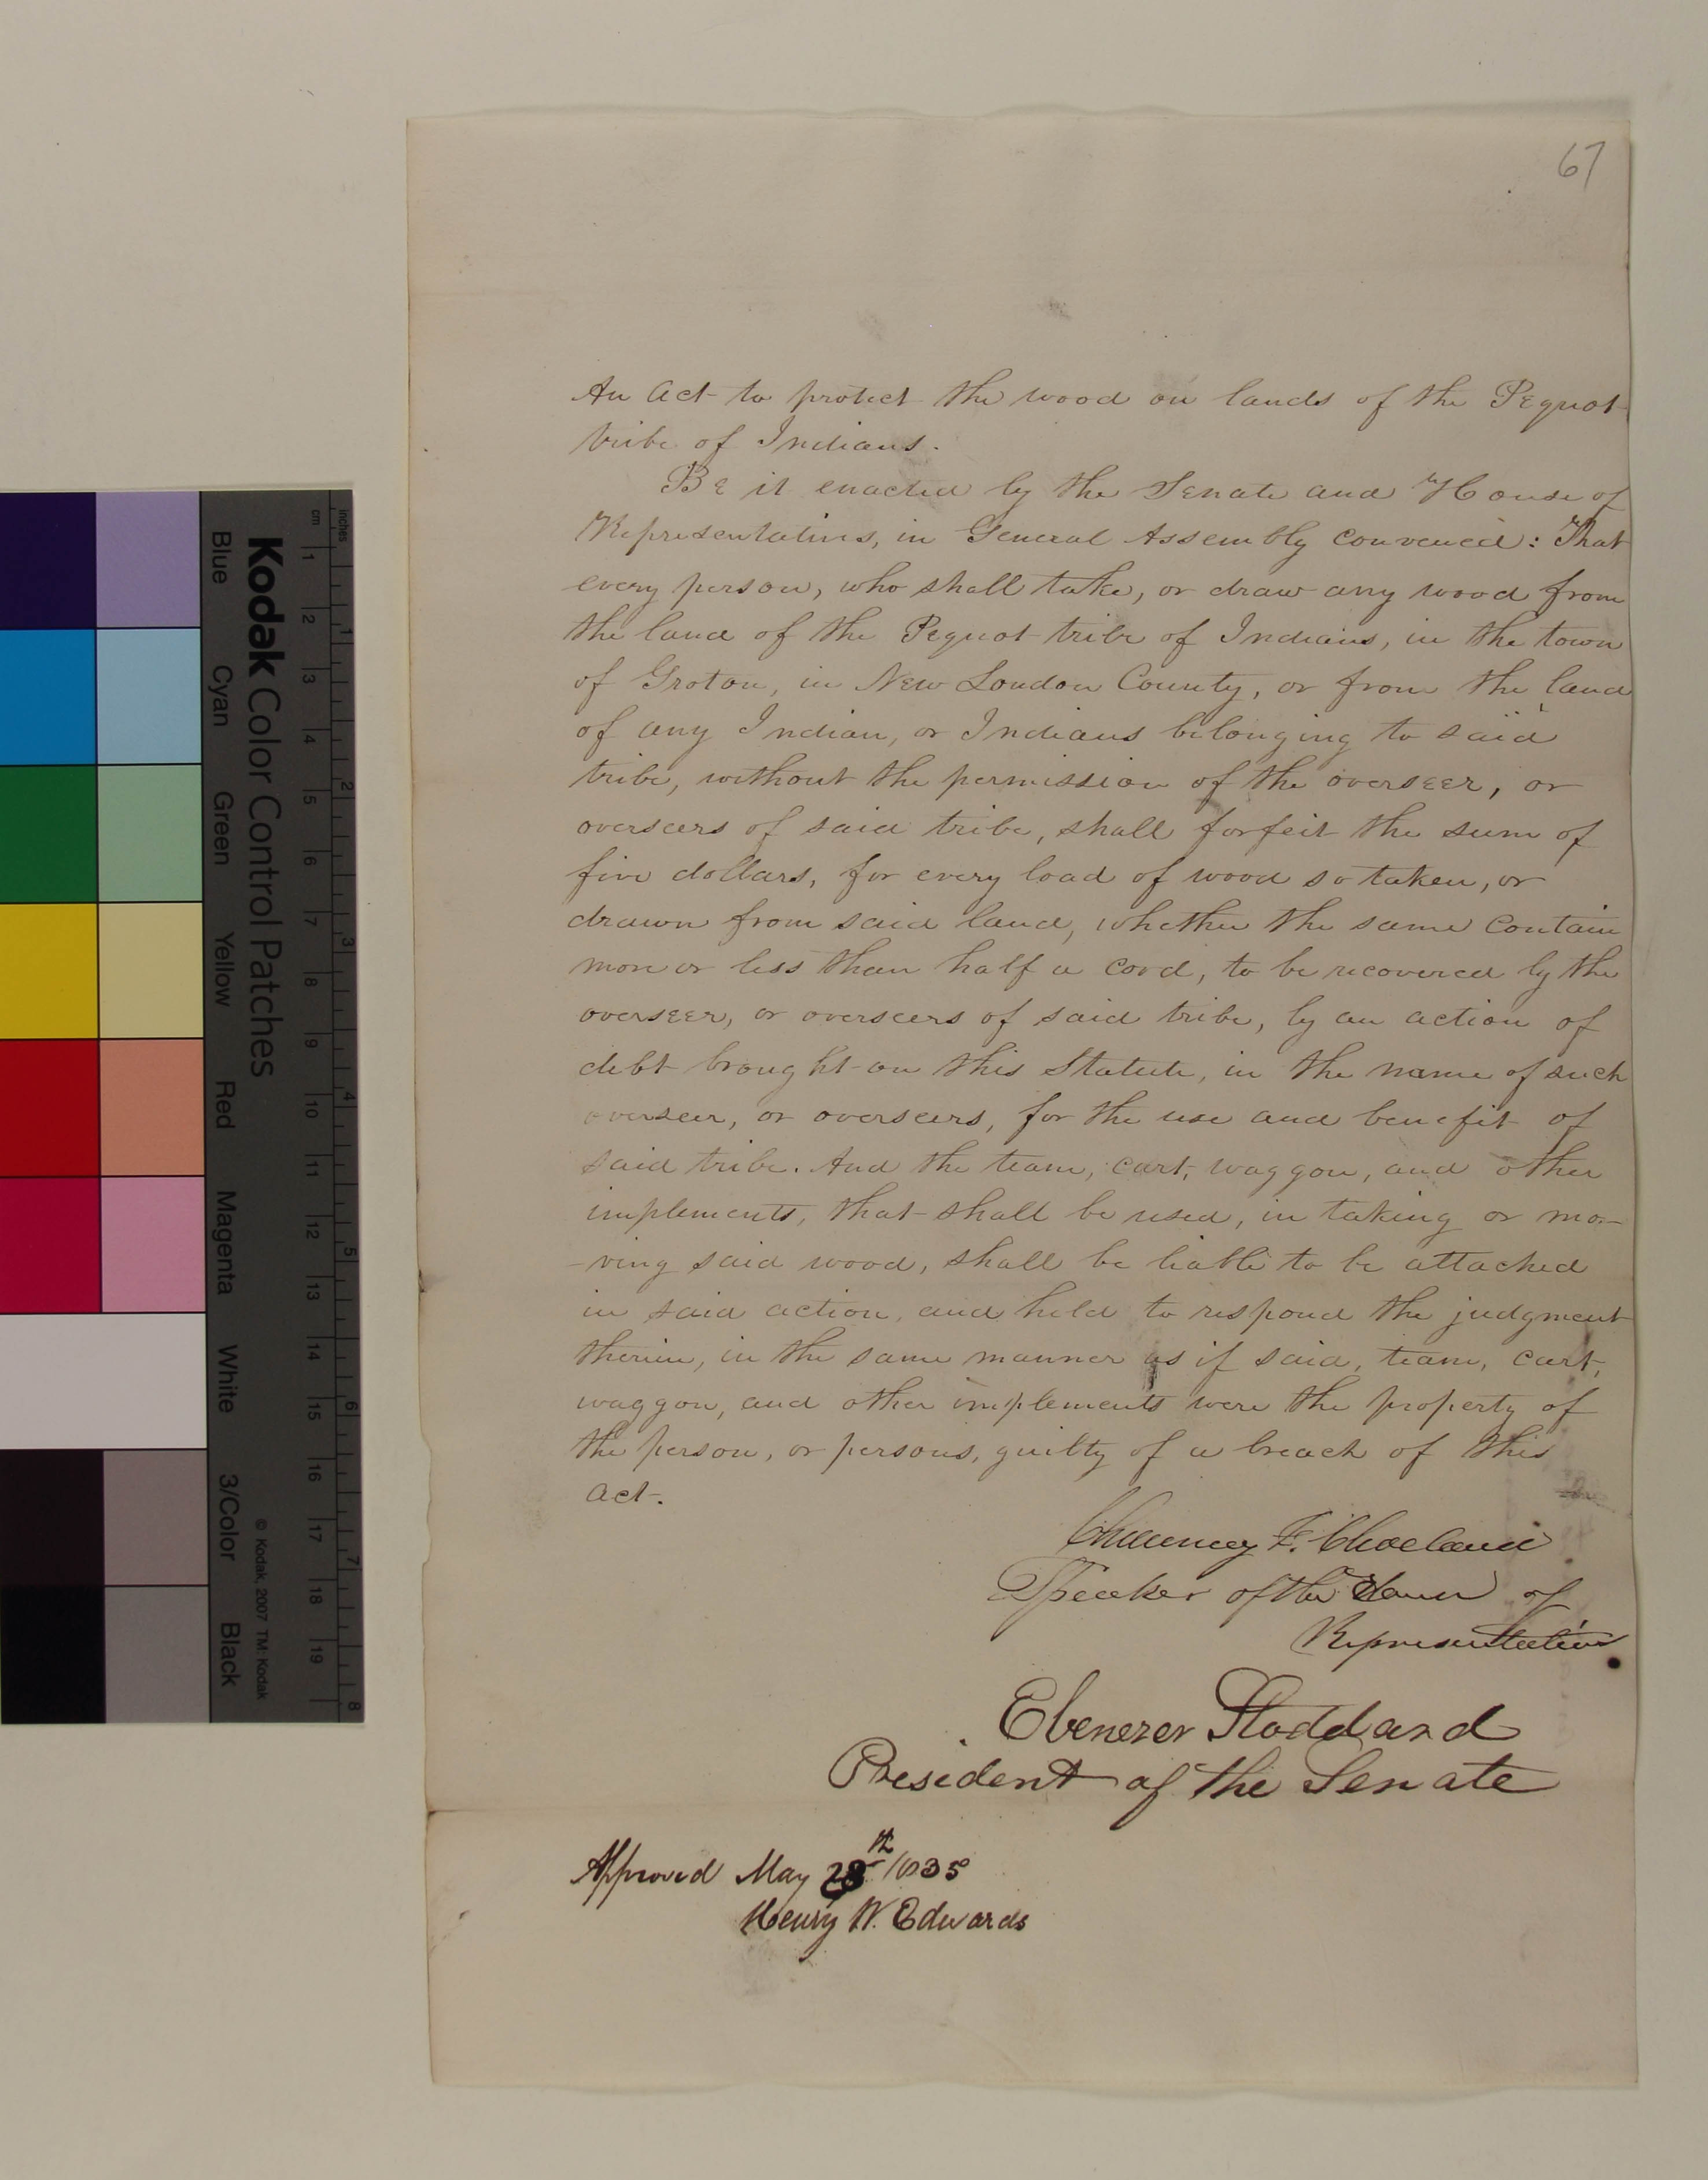 67
An Act to protect the wood on lands of the Pequot
tribe of Indians.
Be it enacted by the Senate and House of
Representatives, in General Assembly convened: That
every person, who shall take, or draw any wood from
the land of the Pequot tribe of Indians, in the town
of Groton, in New London County, or from the land
of any Indian, or Indians belonging to said
tribe, without the permission of the overseer, or
overseers of said tribe, shall forfeit the sum of
five dollars, for every load of wood so taken, or
drawn from said land, whether the same contain
more or less than half a cord, to be recovered by the
overseer, or overseers of said tribe, by an action of
debt brought on this Statute, in the name of such
overseer, or overseers, for the use and benefit of
said tribe. And the team, cart, waggon, and other
implements, that shall be used, in taking or mo-
-ving said wood, shall be liable to be attached
in said action, and held to respond the judgment
therein, in the same manner as if said, team, cart,
waggon, and other implements were the property of
the person, or persons, guilty of a breach of this
act.
Chauncey F. Cleveland
Speaker of the House of
Representatives
Ebenezer Stoddard
President of the Senate
Approved May 28th 1835
Henry W. Edwards
Kodak Color Control Patches
Blue Cyan Green Yellow Red Magenta White 3/Color Black
© Kodak, 2007 TM: Kodak
inches 1 2 3 4 5 6 7 8
cm 1 2 3 4 5 6 7 8 9 10 11 12 13 14 15 16 17 18 19